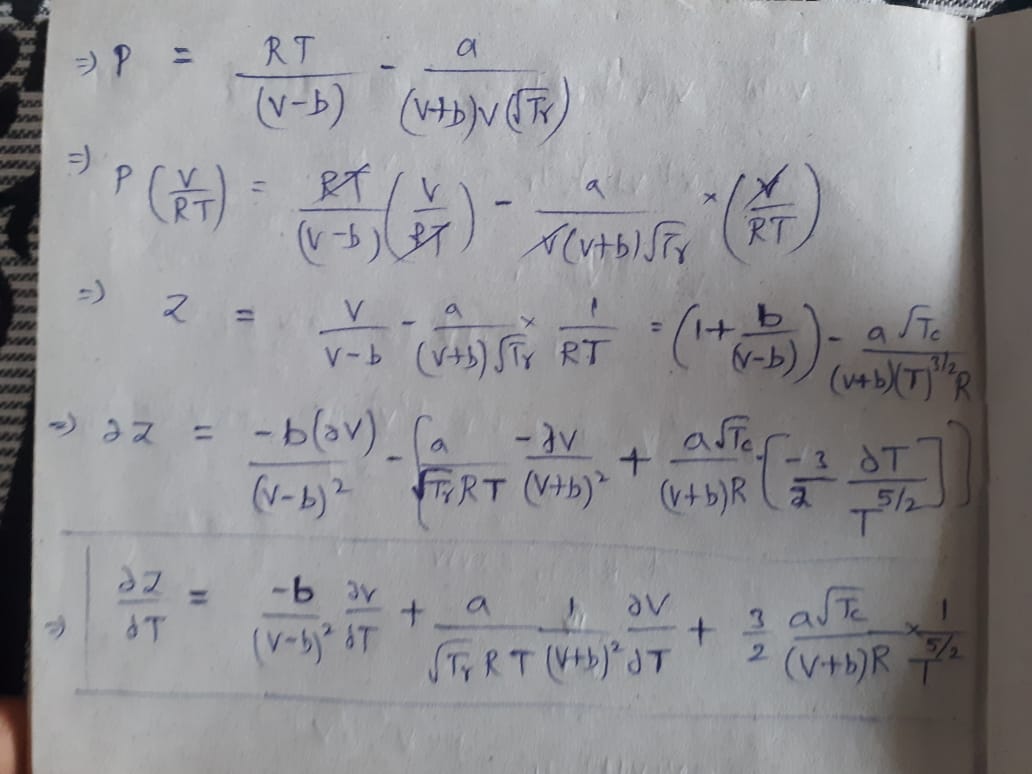 ⇒ P = RT/(V-b) - a/((V+b)V(√Tr))
⇒ P (V/RT) = RT/(V-b) (V/RT) - a/(V(V+b)√Tr) × (V/RT)
⇒ Z = V/(V-b) - a/((V+b)√Tr) × 1/RT = (1 + b/(V-b)) - a√Tc/((V+b)(T)^3/2 R)
⇒ ∂Z = -b(∂V)/(V-b)² - [a/(√Tr RT) -∂V/(V+b)² + a√Tc/((V+b)R) · [-3/2 ∂T/T^5/2]]
⇒ ∂Z/∂T = -b/(V-b)² ∂V/∂T + a/(√Tr RT) 1/(V+b)² ∂V/∂T + 3/2 a√Tc/((V+b)R) × 1/T^5/2